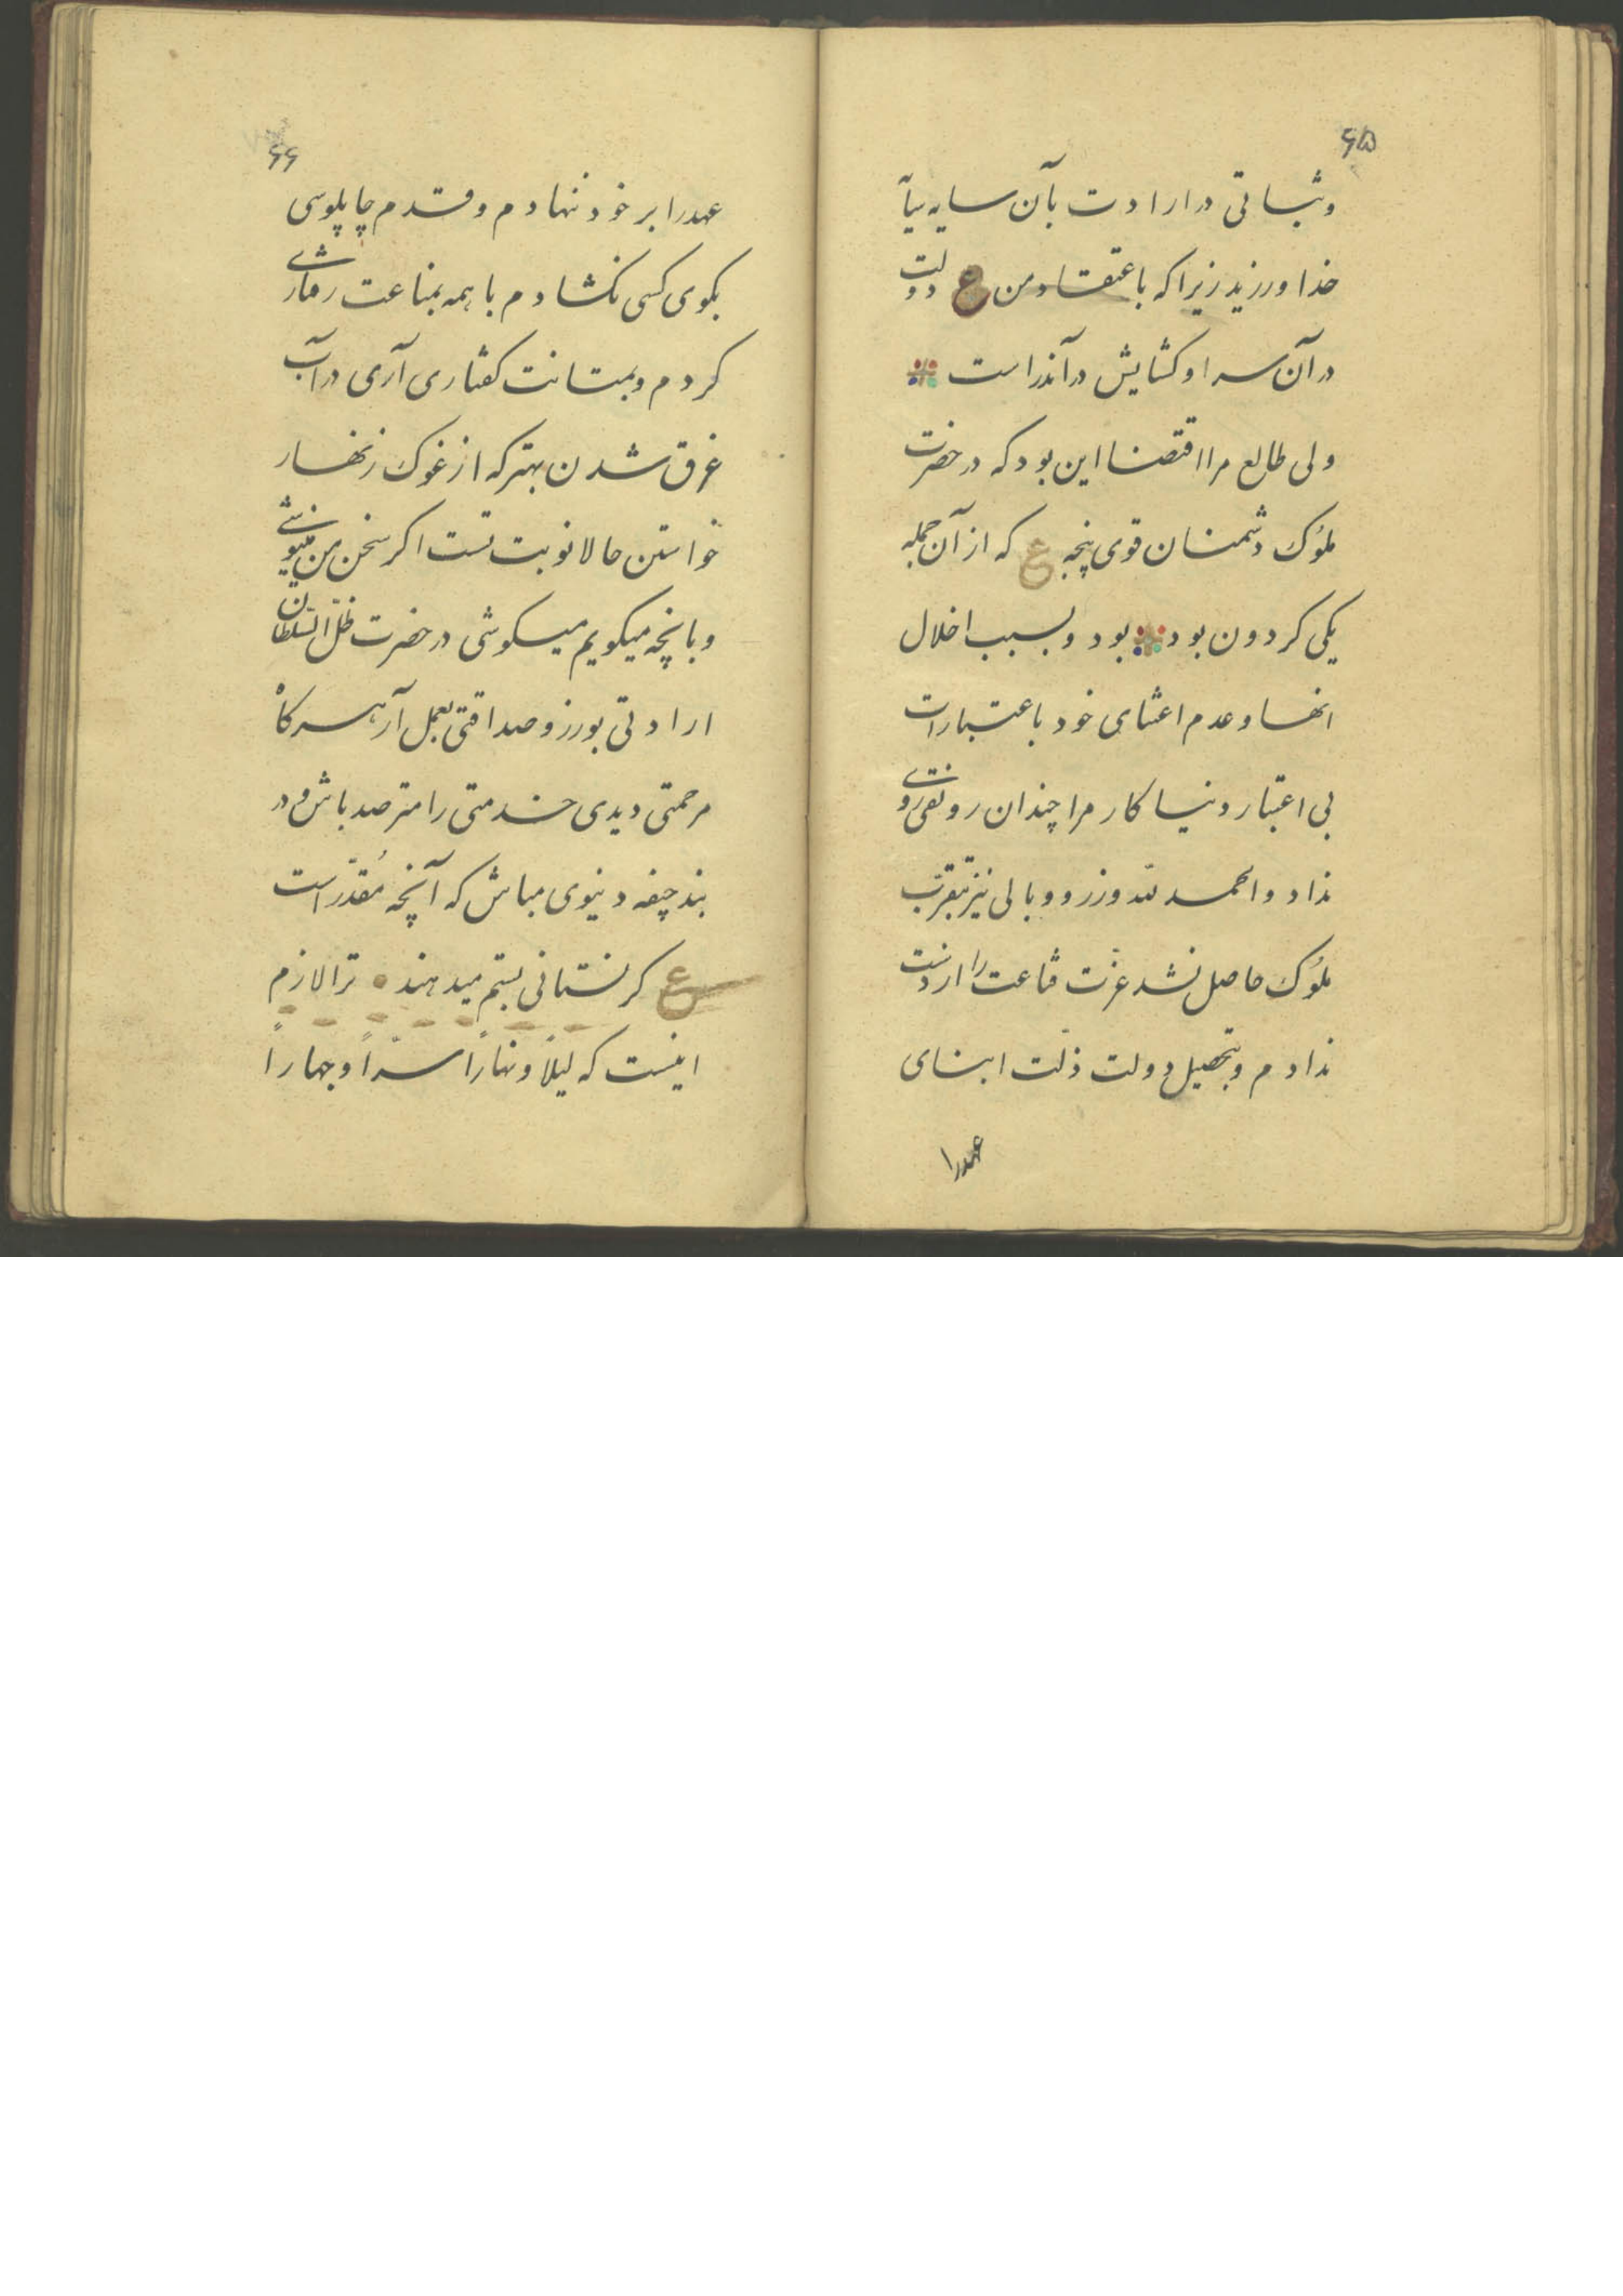 ۶۵
وثباتی در ارادت بآن سایه بیآ
خدا ورزید زیرا که باعتقاد من ع دولت
در آن سرا و کشایش در آندر است
ولی طالع مرا اقتضا این بود که در حضرت
ملوُک دشمنان قوی پنجه ع که از آن جمله
یکی کردون بود بود و بسبب اخلال
انها و عدم اعتنای خود باعتبارات
بی اعتبار دنیا کار مرا چندان رونقی روی
نداد والحمد لله وزر و وبالی نیز بتقرّب
ملوُک حاصل نشد عزّت قناعت را از دست
ندادم و بتحصیل دولت ذلّت ابنای
عهدرا
۶۶
عهدرا بر خود ننهادم و قدم چاپلوسی
بکوی کسی نکشادم با همه بمناعت رفتاری
کردم و بمتانت کفتاری آری در آب
غرق شدن بهتر که از غوک زنهار
خواستن حالا نوبت تست اکر سخن من مینیوشی
و بانچه میکویم میکوشی در حضرت ظلّ السّلطان
ارادتی بورز و صداقتی بعمل آر هر کاه
مرحمتی دیدی خدمتی را مترصد باش و در
بند جیفه دنیوی مباش که آنچه مُقدّر است
ع کر نستانی بستم میدهند ترا لازم
اینست که لیلاً و نهاراً سرّاً و جهاراً